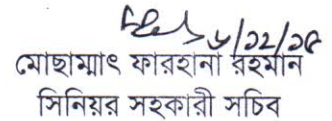 ৬/১২/১৫
মোছাম্মাৎ ফারহানা রহমান
সিনিয়র সহকারী সচিব